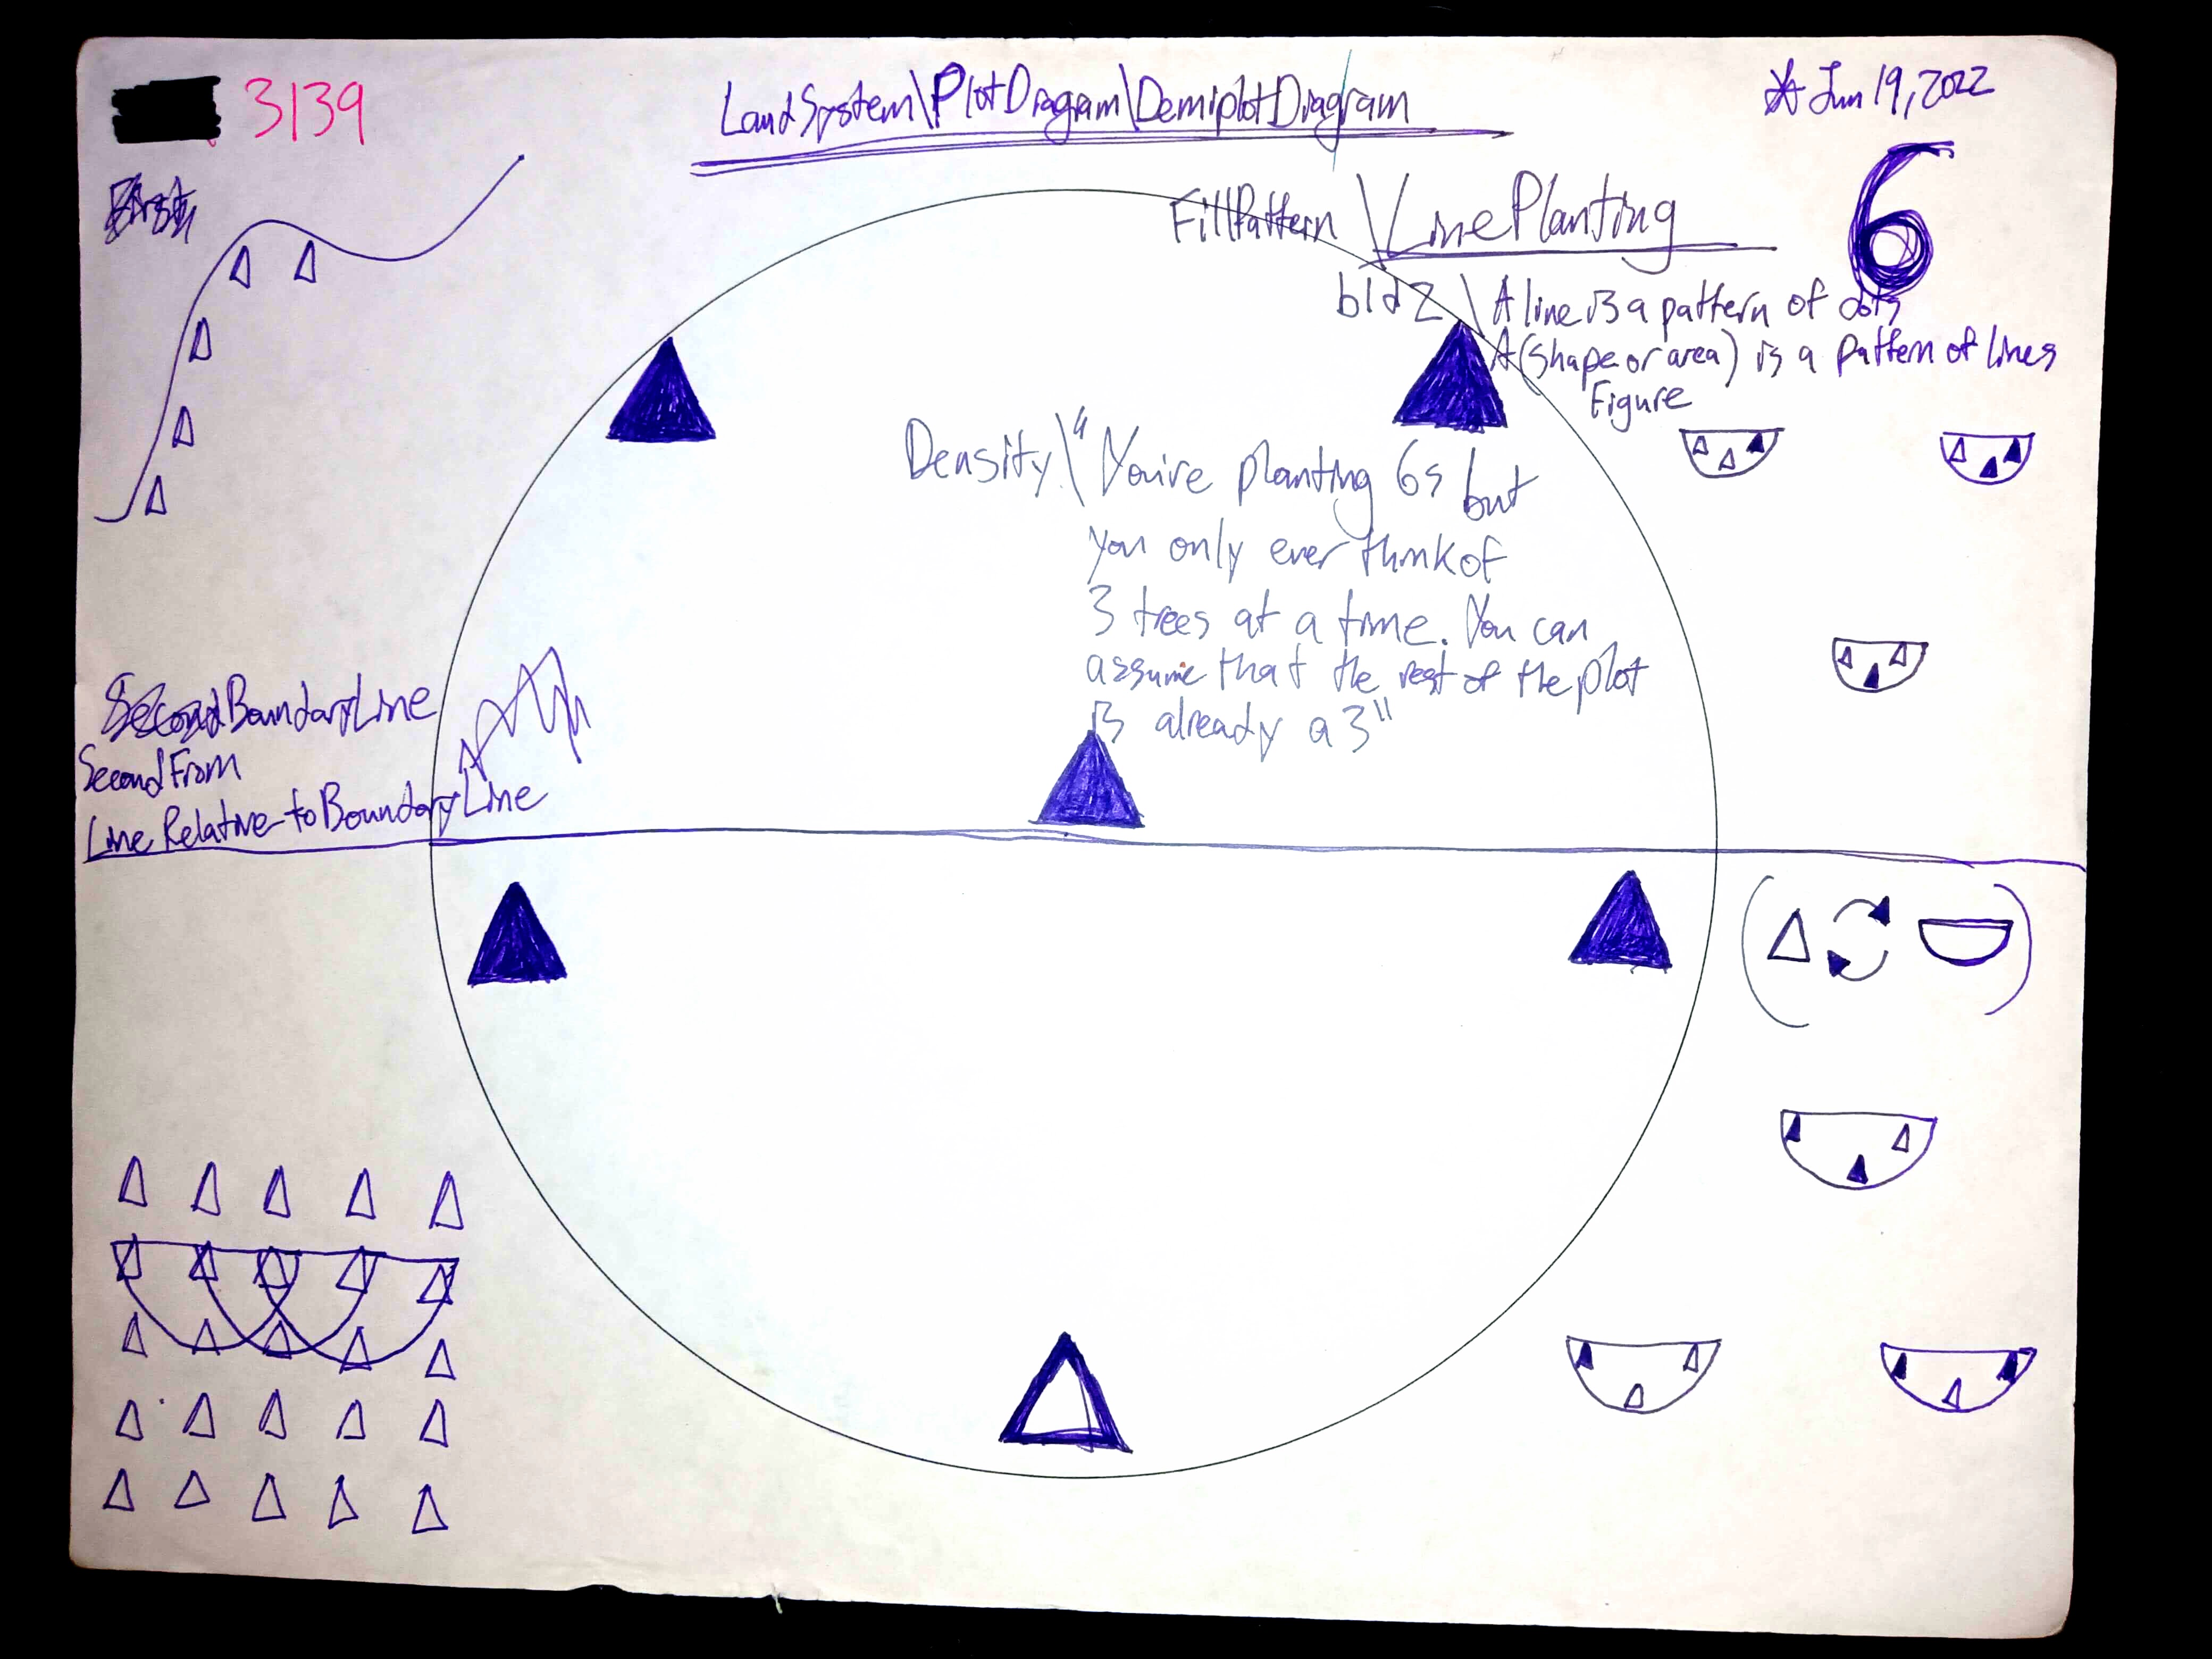 3139
LandSystem\PlotDiagram\DemiplotDiagram
Jun 19, 2022
6
First
FillPattern \LinePlanting
bldz \ A line is a pattern of dots
A (shape or area) is a pattern of lines
Figure
Density \ "You're planting 6s but
you only ever think of
3 trees at a time. You can
assume that the rest of the plot
is already a 3"
Second BoundaryLine
Second From
Line Relative to BoundaryLine